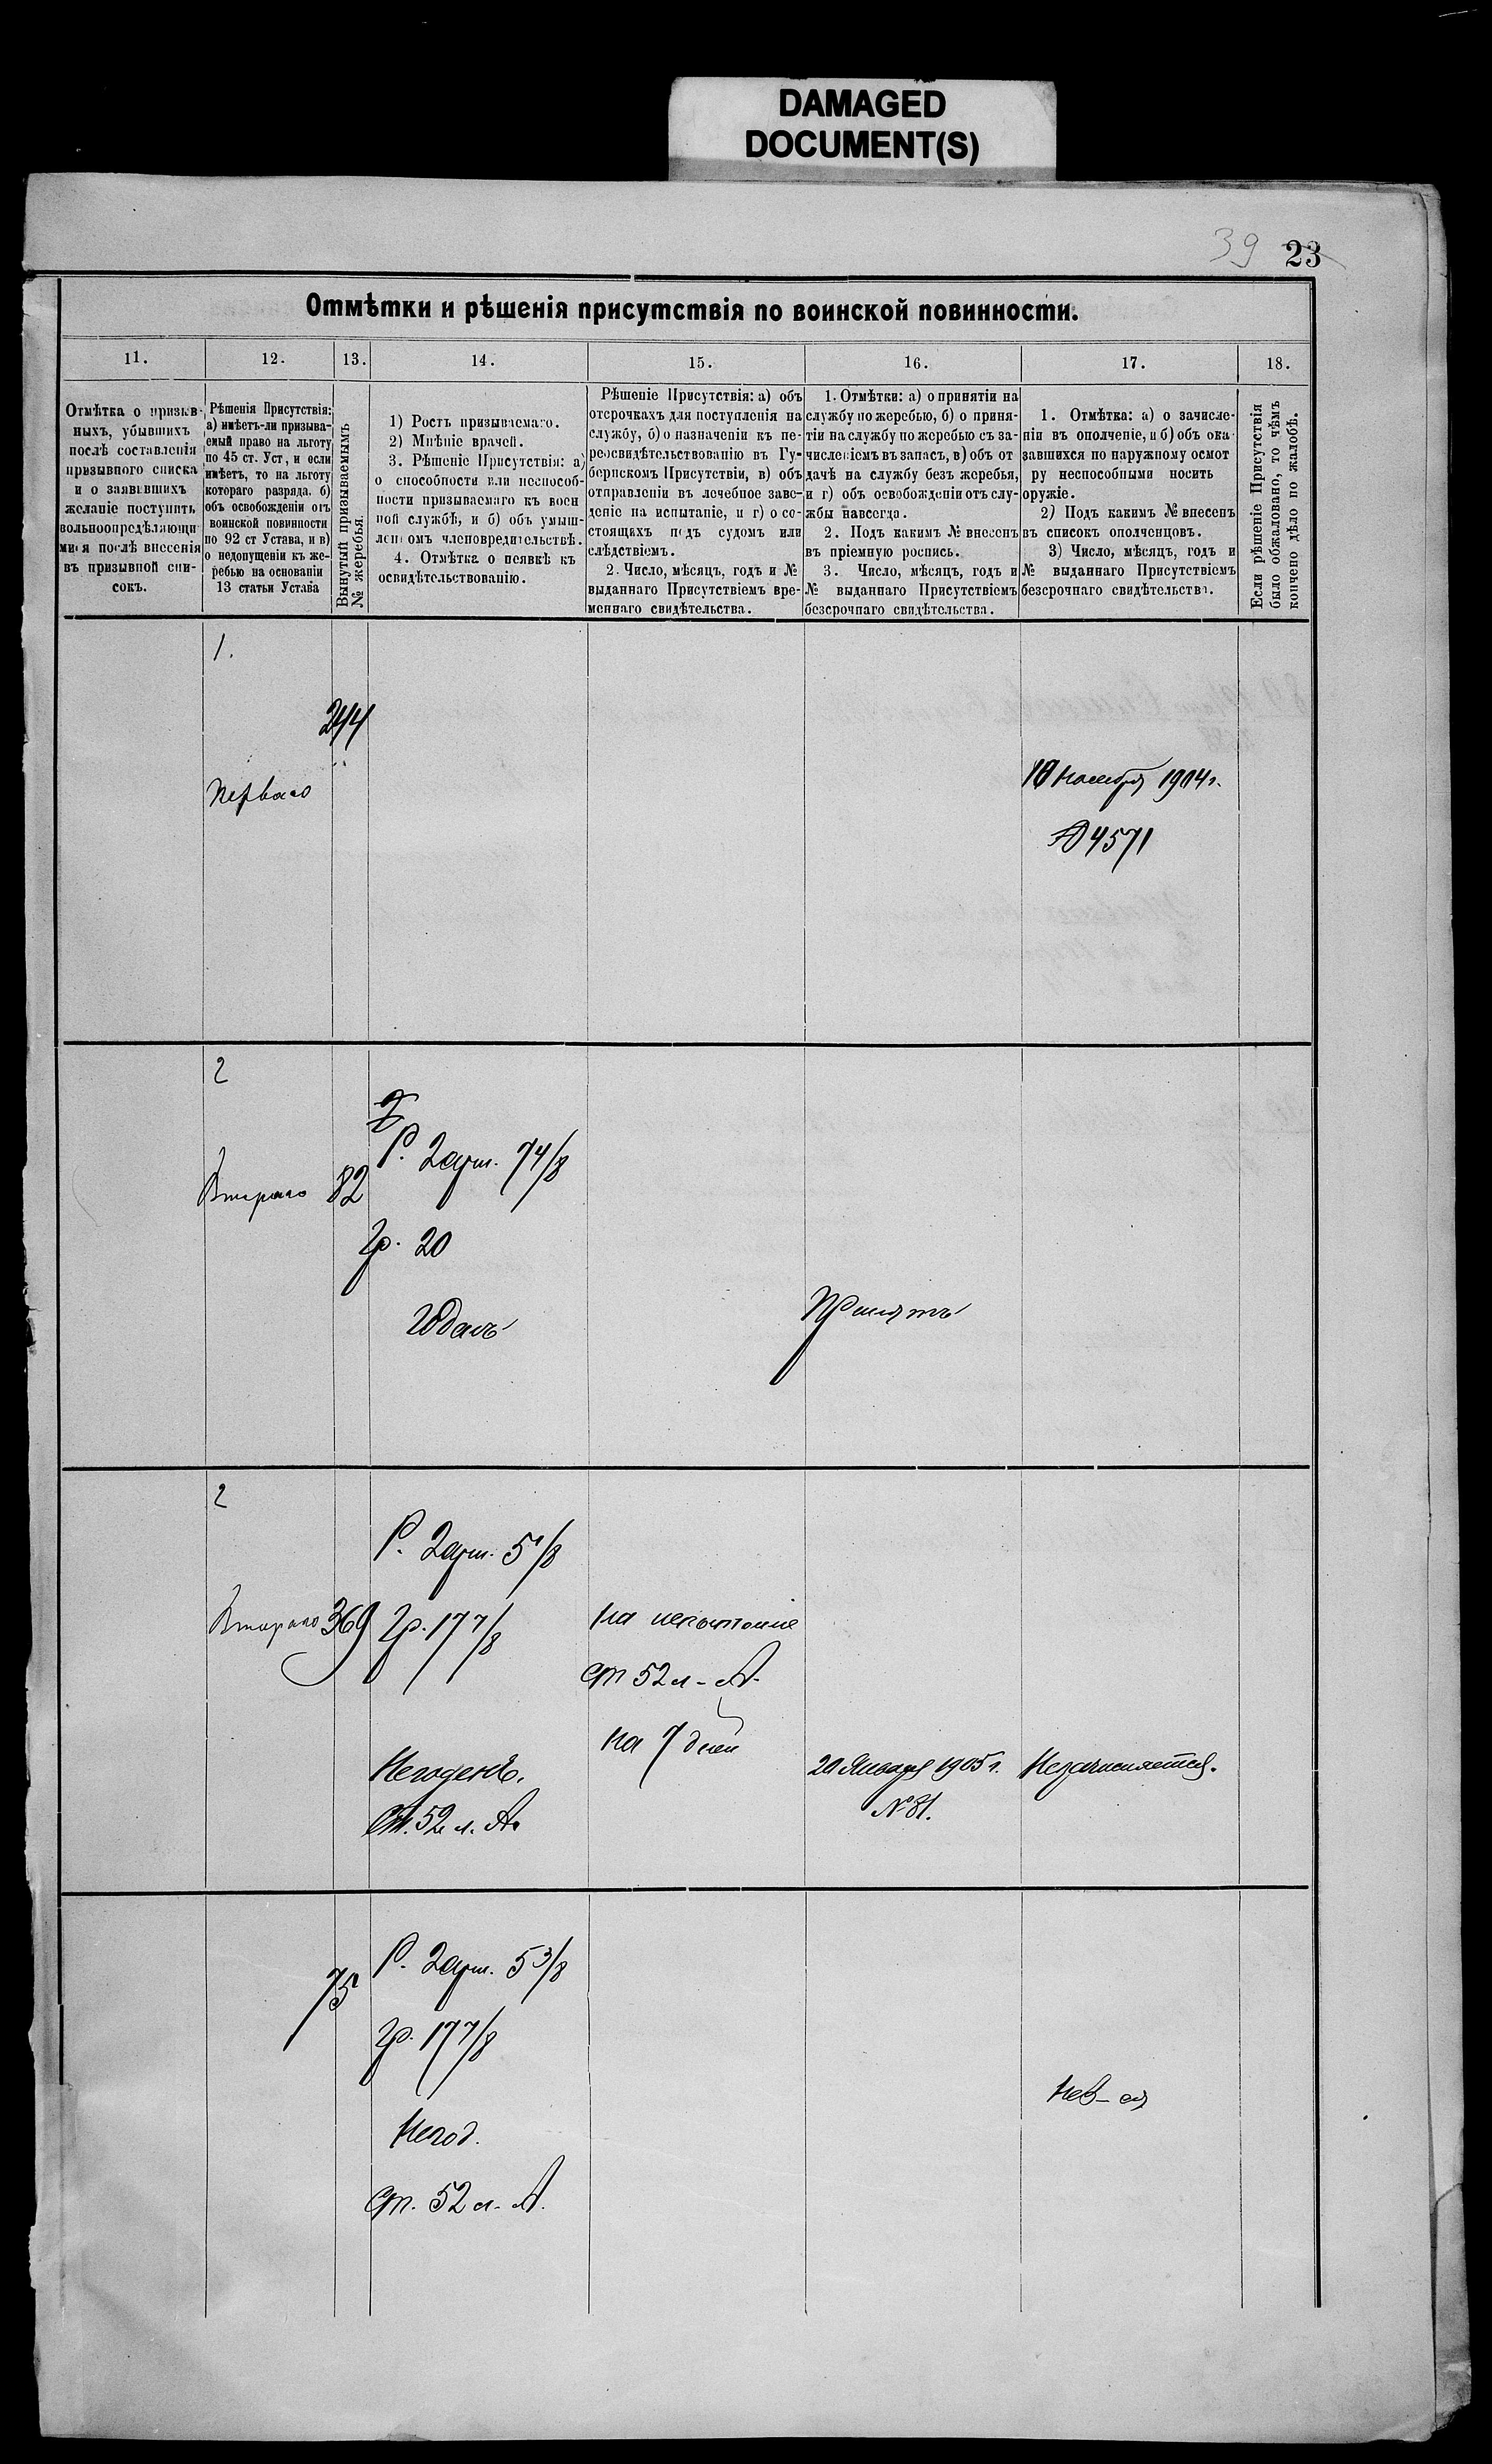 DAMAGED
DOCUMENT(S)
39 23
Отмѣтки и рѣшенія присутствія по воинской повинности.
11. 12. 13. 14. 15. 16. 17. 18.
Отмѣтка о призыв-
ныхъ, убывшихъ
послѣ составленія
призывного списка
и о заявившихъ
желаніе поступить
вольноопредѣляющи
мися послѣ внесенія
въ призывной спи-
сокъ.
Рѣшенія Присутствія:
а) имѣетъ-ли призыва-
емый право на льготу
по 45 ст. Уст, и если
имѣетъ, то на льготу
котораго разряда. б)
объ освобожденіи отъ
воинской повинности
по 92 ст Устава, и в)
о недопущеніи къ же-
ребью на основаніи
13 статьи Устава
Вынутый призываемымъ
№ жеребья.
1) Ростъ призываемаго.
2) Мнѣніе врачей.
3. Рѣшеніе Присутствія: а)
о способности или неспособ-
ности призываемаго къ воен
ной службѣ, и б) объ умыш-
леномъ членовредительствѣ.
4. Отмѣтка о неявкѣ къ
освидѣтельствованію.
Рѣшеніе Присутствія: а) объ
отсрочкахъ для поступленія на
службу, б) о назначеніи къ пе-
реосвидѣтельствованію въ Гу-
бернскомъ Присутствіи, в) объ
отправленіи въ лечебное заве-
деніе на испытаніе, и г) о со-
стоящахъ подъ судомъ или
слѣдствіемъ.
2. Число, мѣсяцъ, годъ и №
выданнаго Присутствіемъ вре-
меннаго свидѣтельства.
1. Отмѣтки: а) о принятіи на
службу по жеребью, б) о приня-
тіи на службу по жеребью съ за-
численіемъ въ запасъ, в) объ от
дачѣ на службу безъ жеребья,
и г) объ освобожденіи отъ слу-
жбы навсегда.
2. Подъ какимъ № внесенъ
въ пріемную роспись.
3. Число, мѣсяцъ, годъ и
№ выданнаго Присутствіемъ
безсрочнаго свидѣтельства.
1. Отмѣтка: а) о зачисле-
ніи въ ополченіе, и б) объ ока
завшихся по наружному осмот
ру неспособными носить
оружіе.
2) Подъ какимъ № внесенъ
въ списокъ ополченцовъ.
3) Число, мѣсяцъ, годъ и
№ выданнаго Присутствіемъ
безсрочнаго свидѣтельства.
Если рѣшеніе Присутствія
было обжаловано, то чѣмъ
кончено дѣло по жалобѣ.
1.
244
Перваго
10 Ноября 1904 г.
№ 4571
2
Р. 2 арш. 7 4/8
Втораго 82
Гр. 20
Годенъ
Принятъ
2
Р. 2 арш. 5 1/8
Втораго 369 Гр. 17 7/8
На испытаніе
Ст 52 л. А.
на 7 дней
Негоденъ.
Ст. 52 л. А.
20 Января 1905 г.
№ 81.
Незачисляется.
75
Р. 2 арш. 5 3/8
Гр. 17 7/8
Негод.
Ст. 52 л. А.